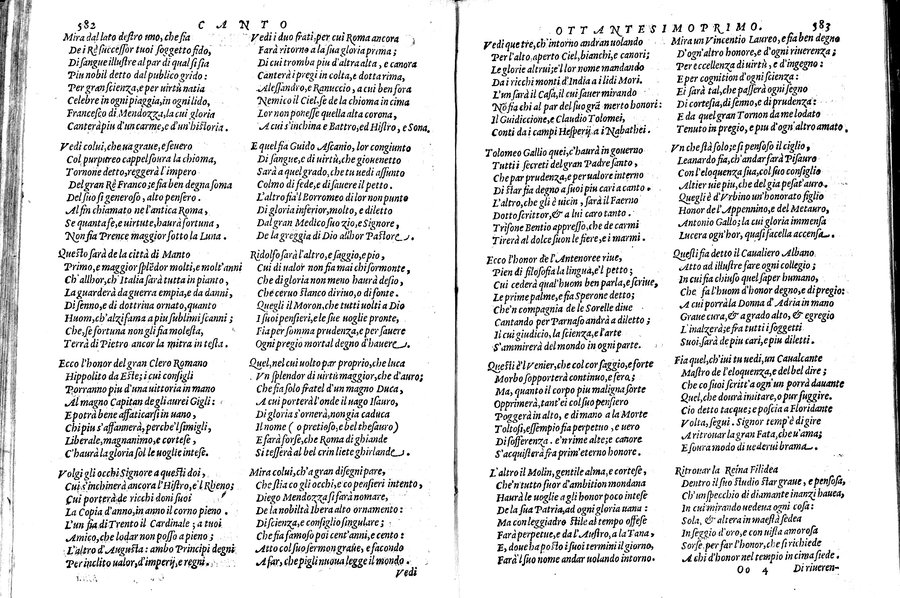 582 CANTO
Mira dal lato destro uno, che fia
De i Rè successor tuoi soggetto fido,
Di sangue illustre al par di qual si sia
Piu nobil detto dal publico grido:
Per gran scienza, e per virtù natia
Celebre in ogni piaggia, in ogni lido,
Francesco di Mendozza, la cui gloria
Canterà piu d'un carme, e d'un' historia.
Vedi colui, che ua graue, e seuero
Col purpureo cappel soura la chioma,
Tornone detto; reggerà l'impero
Del gran Rè Franco; e sia ben degna soma
Del suo si generoso, alto pensero.
Al fin chiamato ne l'antica Roma,
Se quanta fe, e uirtute, haurà fortuna,
Non fia Prence maggior sotto la Luna.
Questo sarà de la città di Manto
Primo, e maggior splẽdor molti, e molt'anni
Ch'allhor, ch Italia sarà tutta in pianto,
La guarderà da guerra empia, e da danni,
Di senno, e di dottrina ornato, quanto
Huom, ch'alzi fama a piu sublimi scanni;
Che, se fortuna non gli fia molesta,
Terrà di Pietro ancor la mitra in testa.
Ecco l'honor del gran Clero Romano
Hippolito da Este; i cui consigli
Porranno piu d'una uittoria in mano
Al magno Capitan de gli aurei Gigli:
E potrà bene affaticarsi in uano,
Chi piu s'affannerà, perche'l simigli,
Liberale, magnanimo, e cortese,
C'haurà la gloria sol le uoglie intese.
Volgi gli occhi Signore a questi doi,
Cui s'inchinerà ancora l'Histro, e'l Rheno;
Cui porterà de ricchi doni suoi
La Copia d'anno, in anno il corno pieno.
L'un fia di Trento il Cardinale; a tuoi
Amico, che lodar non posso a pieno;
L'altro d'Augusta: ambo Principi degni
Per inclito ualor, d'imperij, e regni.
Vedi i duo frati, per cui Roma ancora
Farà ritorno a la sua gloria prima;
Di cui tromba piu d'altra alta, e canora
Canterà i pregi in colta, e dotta rima,
Alessandro, e Ranuccio, a cui ben fora
Nemico il Ciel, se de la chioma in cima
Lor non ponesse quella alta corona,
A cui s'inchina e Battro, ed Histro, e Sona.
E quel sia Guido Ascanio, lor congiunto
Di sangue, e di uirtù, che giouenetto
Sarà a quel grado, che tu uedi assunto
Colmo di fede, e di sauere il petto.
L'altro sia'l Borromeo di lor non punto
Di gloria inferior, molto, e diletto
Dal gran Medico suo zio, e Signore,
De la greggia di Dio allhor Pastore.
Ridolfo sarà l'altro, e saggio, e pio,
Cui di ualor non fia mai chi sormonte,
Che di gloria non meno haurà desio,
Che ceruo stanco di riuo, o di fonte.
Quegli il Moron, che tutti uolti a Dio
I suoi pensieri, e le sue uoglie pronte,
Fia per somma prudenza, e per sauere
Ogni pregio mortal degno d'hauere.
Quel, nel cui uolto par proprio, che luca
Vn splendor di uirtù maggior, che d'auro;
Che fia solo fratel d'un magno Duca,
A cui porterà l'onde il uago Isauro,
Di gloria s'ornerà, non gia caduca
Il nome (o pretioso, e bel thesauro)
E sarà forse, che Roma di ghiande
Si tesserà al bel crin liete ghirlande.
Mira colui, ch'a gran disegni pare,
Che stia co gli occhi, e co pensieri intento,
Diego Mendozza si farà nomare,
De la nobiltà Ibera alto ornamento:
Di scienza, e consiglio singulare;
Che fia famoso poi cent'anni, e cento:
Atto col suo sermon graue, e facondo
A far, che pigli nuoua legge il mondo.
Vedi
OTTANTESIMOPRIMO. 583
Vedi que tre, ch'intorno andran uolando
Per l'alto, aperto Ciel, bianchi, e canori;
Le glorie altrui; e'l lor nome mandando
Da i ricchi monti d'India a i lidi Mori.
L'un sarà il Casa, il cui sauer mirando
Nõ fia chi al par del suo grã merto honori:
Il Guidiccione, e Claudio Tolomei,
Conti da i campi Hesperij a i Nabathei.
Tolomeo Gallio quei, c'haurà in gouerno
Tutti i secreti del gran Padre santo,
Che par prudenza, e per ualore interno
Di star sia degno a suoi piu cari a canto.
L'altro, che gli è uicin, sarà il Faerno
Dotto scrittor, & a lui caro tanto.
Trifone Bentio appresso, che de carmi
Tirerà al dolce suon le fiere, e i marmi.
Ecco l'honor de l'Antenoree riue,
Pien di filosofia la lingua, e'l petto;
Cui cederà qual'huom ben parla, e scriue,
Le prime palme, e sia Sperone detto;
Che'n compagnia de le Sorelle diue
Cantando per Parnaso andrà a diletto;
I cui giudicio, la scienza, e l'arte
S'ammirerà del mondo in ogni parte.
Questi è'l Venier, che col cor saggio, e forte
Morbo sopporterà continuo, e fera;
Ma, quanto il corpo piu maligna sorte
Opprimerà, tant'ei col suo pensiero
Poggerà in alto, e di mano a la Morte
Toltosi, essempio fia perpetuo, e uero
Di sofferenza. e'n rime alte; e canore
S'acquisterà fra prim'eterno honore.
L'altro il Molin, gentile alma, e cortese,
Che'n tutto fuor d'ambition mondana
Haurà le uoglie a gli honor poco intese
De la sua Patria, ad ogni gloria uana:
Ma con leggiadro stile al tempo offese
Farà perpetue, e da l'Austro, a la Tana,
E, doue ha posto i suoi termini il giorno,
Farà'l suo nome andar uolando intorno.
Mira un Vincentio Laureo, e sia ben degno
D'ogn'altro honore, e d'ogni riuerenza;
Per eccellenza di uirtù, e d'ingegno:
E per cognition d'ogni scienza:
Ei sarà tal, che passerà ogni segno
Di cortesia, di senno, e di prudenza:
E da quel gran Tornon da me lodato
Tenuto in pregio, e piu d'ogni altro amato.
Vn che stà solo; e si pensoso il ciglio,
Leonardo fia, ch'andar farà Pisauro
Con l'eloquenza sua, col suo consiglio
Altier uie piu, che del gia pesat'auro.
Quegli è d'Vrbino un'honorato figlio
Honor de l'Appennino, e del Metauro,
Antonio Gallo; la cui gloria immensa
Lucera ogn'hor, quasi facella accensa.
Questi sia detto il Caualiero Albano
Atto ad illustrare ogni collegio;
In cui fia chiuso quel saper humano,
Che fa l'huom d'honor degno, e di pregio:
A cui porrà la Donna d'Adria in mano
Graue cura, & a grado alto, & egregio
L'inalzerà; e fra tutti i soggetti
Suoi, sarà de piu cari, e piu diletti.
Fia quel, ch'iui tu uedi, un Caualcante
Mastro de l'eloquenza, e del bel dire;
Che co suoi scritt'a ogn'un porrà dauante
Quel, che dourà imitare, o pur fuggire.
Cio detto tacque; e poscia a Floridante
Volta, seguì. Signor temp'è di gire
A ritrouar la gran Fata, che u'ama;
E soura modo di uederui brama.
Ritrouar la Reina Filidea
Dentro il suo studio star graue, e pensosa,
Ch'un specchio di diamante inanzi hauea,
In cui mirando uedeua ogni cosa:
Sola, & altera in maestà sedea
In seggio d'oro, e con uista amorosa
Sorse. per far l'honor, che si richiede
A chi d'honor nel tempio in cima siede.
Oo 4 Di riueren-